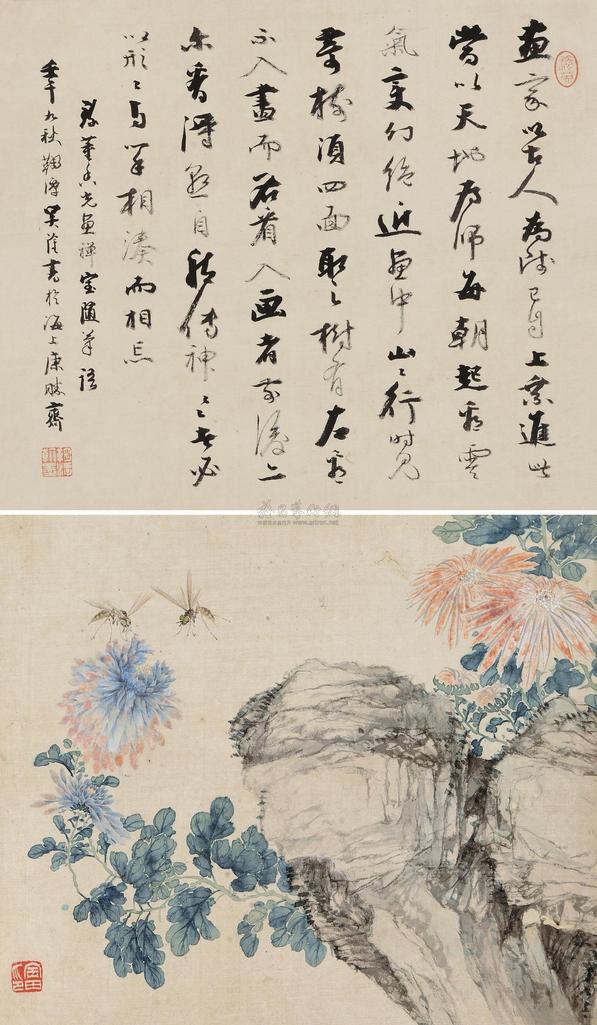 畫家以古人為師已自上乘進此
當以天地為師每朝起看雲
氣變幻絕近畫中山山行時見
奇樹須四面取之樹有左看
不入畫而右看入画者前後亦
尔看得熟自然傳神傳神者必
以形形與筆相湊而相忘
錄董香光畫禪室隨筆語
壬午九秋
書於海上康勝齋
www.artron.net